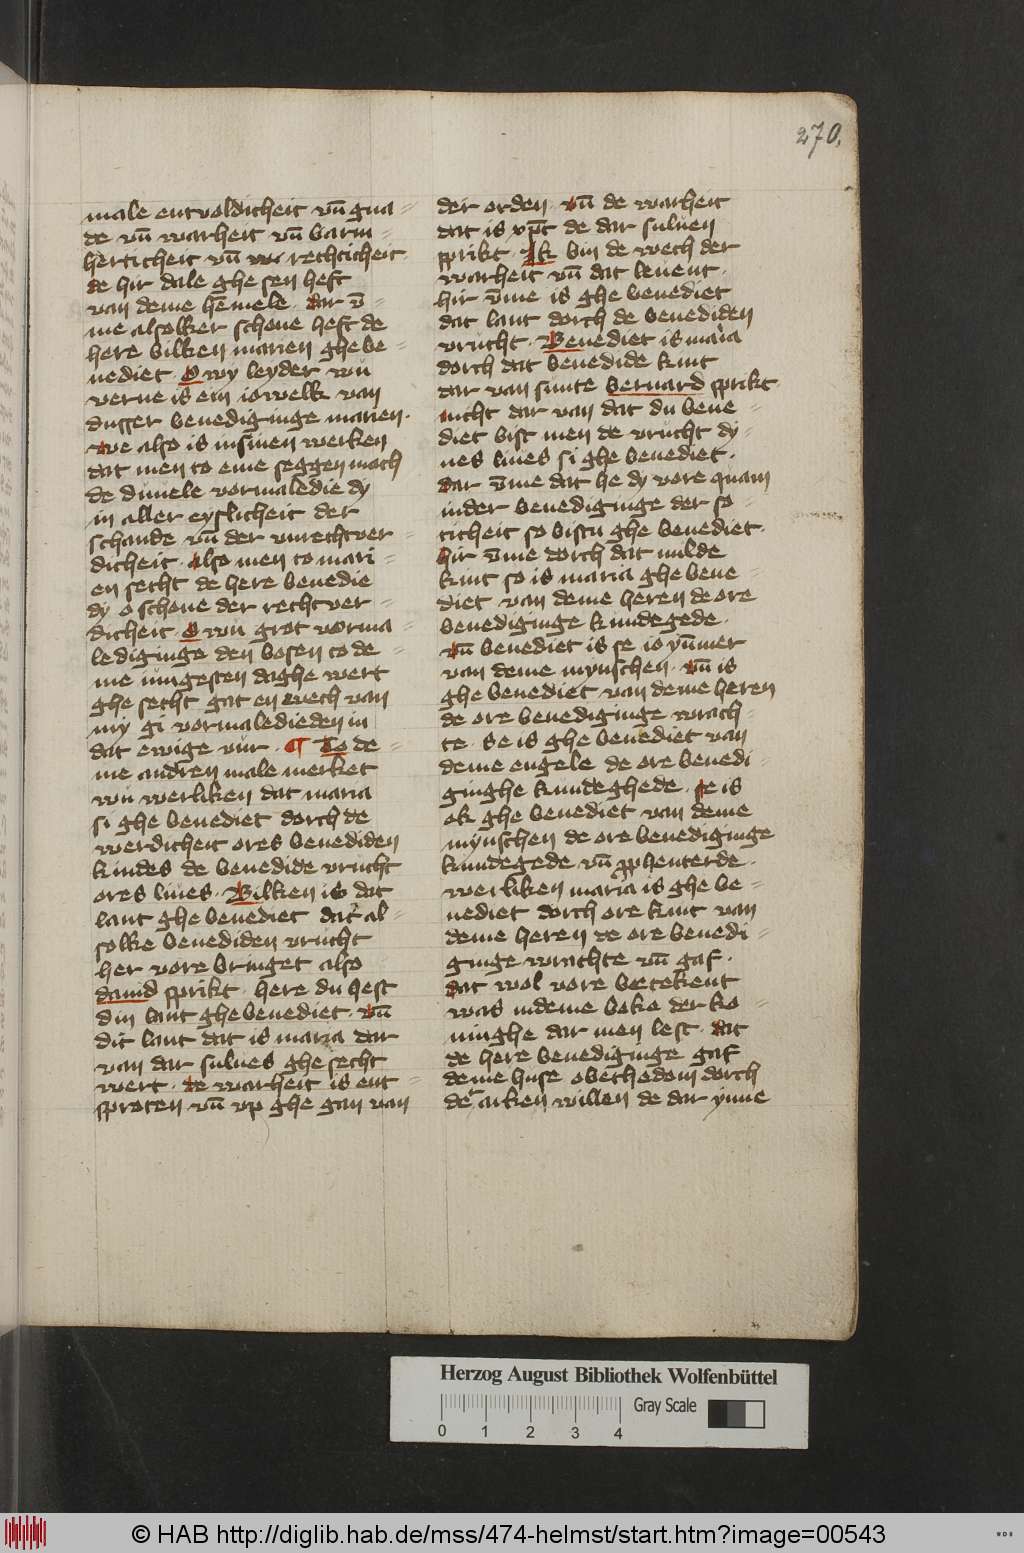 270.
male entvoldicheit vn̄ gna=
de vn̄ warheit vn̄ barm=
herticheit vn̄ we rechticheit.
de hir dale ghe sen heft
van deme hēmele. dar v̄=
me alsolker schone heft de
here bilken marien ghe be=
nediet. O wy leyder wu
verne is ein iowelk van
dusser benediginge marien.
we also is in sinen werken
dat men to eme seggen mach
de duuele vormaledie dy
in aller eyslicheit der
schande vn̄ der vnrechtver=
dicheit. also men to mari=
en secht de here benedie
dy o schone der rechtver=
dicheit. O wu grot vorma=
lediginge den bosen to de=
me iungesten daghe wert
ghe secht gat en wech van
my gi vormaledieden in
dat ewige vur. ¶ To de=
me andren male merket
wu werliken dat maria
si ghe benediet dorch de
werdicheit ores benediden
kindes de benedide vrucht
ores liues. Bilken is dat
lant ghe benediet dat al=
solke benediden vrucht
her vore bringet also
dauid sprikt. here du hest
din lant ghe benediet. vn̄
dit lant dat is maria dar
van dar sulues ghe secht
wert. de warheit is ent=
sproten vn̄ vp ghe gan van
der erden. vn̄ de warheit
dat is xp̄c de dar suluen
sprikt. Ik bin de wech der
warheit vn̄ dat leuent.
hir v̄me is ghe benediet
dat lant dorch de benediden
vrucht. Benediet is maria
dorch dat benedide kint
dar van sunte bernard sprikt
nicht dar van dat du bene=
diet bist men de vrucht dy=
nes liues si ghe benediet.
dar v̄me dat he dy vore quam
in der benediginge der so=
ticheit so bistu ghe benediet.
hir v̄me dorch dat milde
kint so is maria ghe bene=
diet van deme heren de ore
benediginge kundegede.
vn̄ benediet is se io yūmer
van deme mynschen. vn̄ is
ghe benediet van deme heren
de ore benediginge wrach=
te. se is ghe benediet van
deme engele de ore benedi=
ginghe kundeghede. se is
ok ghe benediet van deme
mynschen de ore benediginge
kundegede vn̄ ꝓphenterde.
werliken maria is ghe be=
nediet dorch ore kint van
deme heren de ore benedi=
ginge wrachte vn̄ gaf.
dat wol vore betekent
was in deme boke der ko=
ninghe dar men lest. dat
de here benediginge gaf
deme huse obethedom dorch
der arken willen de dar ynne
Herzog August Bibliothek Wolfenbüttel
0 1 2 3 4
Gray Scale
© HAB http://diglib.hab.de/mss/474-helmst/start.htm?image=00543